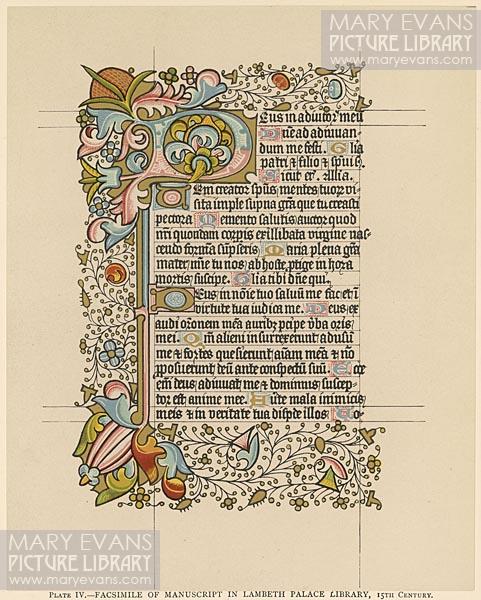 MARY EVANS
PICTURE LIBRARY
www.maryevans.com
Eus in adiutoꝛ meū
Dñe ad adiuuan
dum me festi. Glia
patri & filio & spiui s.
Sicut er. Allia.
Eni creator spūs mentes tuoꝝ vi
sita imple supna grā que tu creasti
pectora Memento salutis auctor quod
nr̄i quondam corpis ex illibata virgine nas
cendo formā sūpseris Maria plena grā
mater mīe tu nos ab hoste ptige in hora
mortis suscipe. Glia tibi dñe qui.
Eus in noīe tuo saluū me fac et ī
virtute tua iudica me. Deus ex
audi oronem meā auribꝫ pcipe vba oris
mei. Qm̄ alieni insurrexerunt adūsū
me & fortes quesierunt aīam meā & nō
pposuerunt deū ante conspectū suū. Ecce
em̄ deus adiuuat me & dominus suscep-
tor est anime mee. Auerte mala inimicis
meis & in veritate tua dispde illos. Uo-
MARY EVANS
PICTURE LIBRARY
www.maryevans.com
PLATE IV.—FACSIMILE OF MANUSCRIPT IN LAMBETH PALACE LIBRARY, 15TH CENTURY.